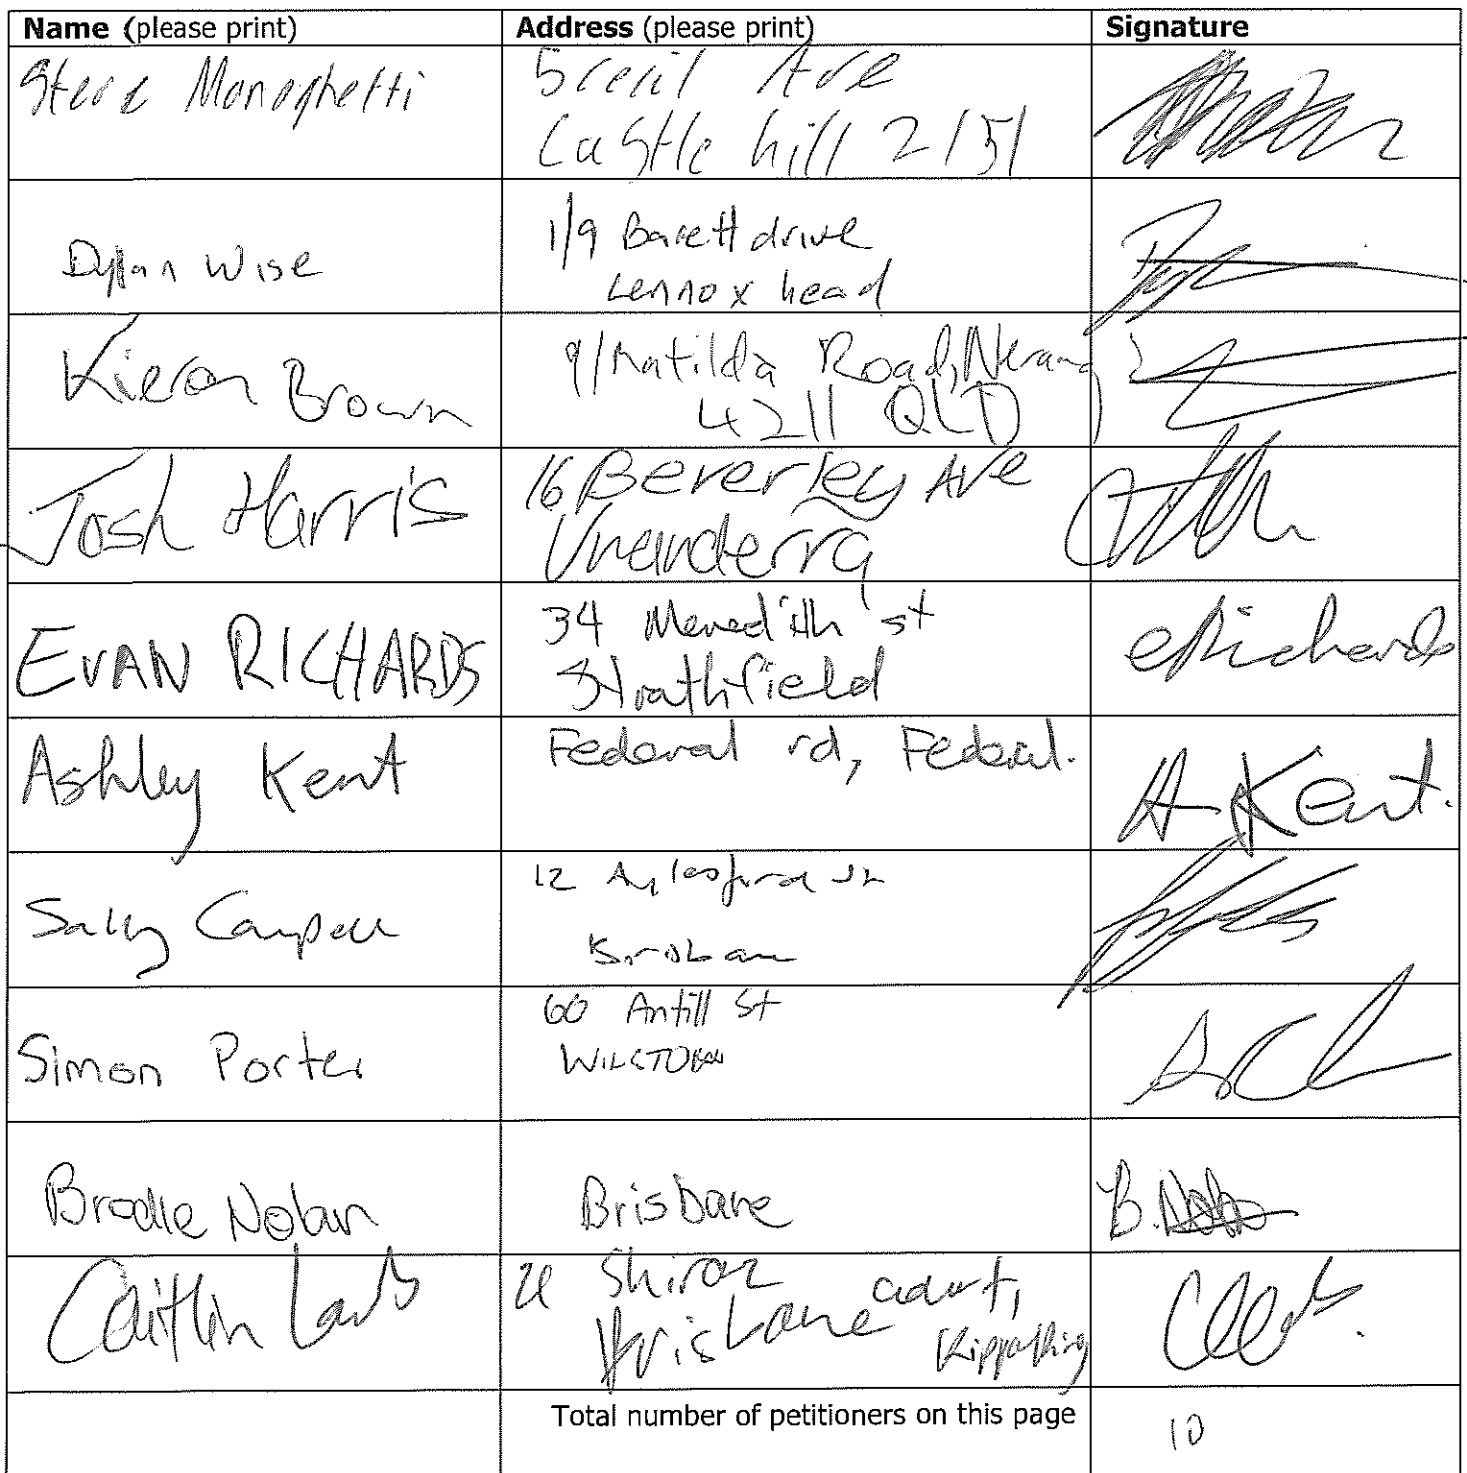 Name (please print) Address (please print) Signature
Steve Monaghetti 5 Cecil Ave
Castle hill 2151
Dylan Wise 1/9 Barett drive
Lennox head
Kieran Brown 9/Matilda Road, Nerang
4211 QLD
Josh Harris 16 Beverley Ave
Unanderra
EVAN RICHARDS 34 Meredith st eRichards
Strathfield
Ashley Kent Federal rd, Federal. A. Kent.
Sally Campell 12 Aylesford
Brisbane
Simon Porter 60 Antill St
Brodie Nolan Brisbane B.
Caitlin Shiraz court,
Brisbane Kippa Ring
Total number of petitioners on this page 10